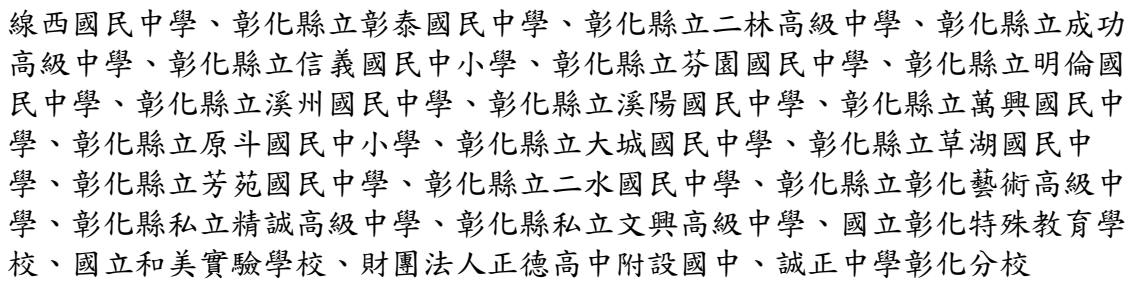 線西國民中學、彰化縣立彰泰國民中學、彰化縣立二林高級中學、彰化縣立成功
高級中學、彰化縣立信義國民中小學、彰化縣立芬園國民中學、彰化縣立明倫國
民中學、彰化縣立溪州國民中學、彰化縣立溪陽國民中學、彰化縣立萬興國民中
學、彰化縣立原斗國民中小學、彰化縣立大城國民中學、彰化縣立草湖國民中
學、彰化縣立芳苑國民中學、彰化縣立二水國民中學、彰化縣立彰化藝術高級中
學、彰化縣私立精誠高級中學、彰化縣私立文興高級中學、國立彰化特殊教育學
校、國立和美實驗學校、財團法人正德高中附設國中、誠正中學彰化分校